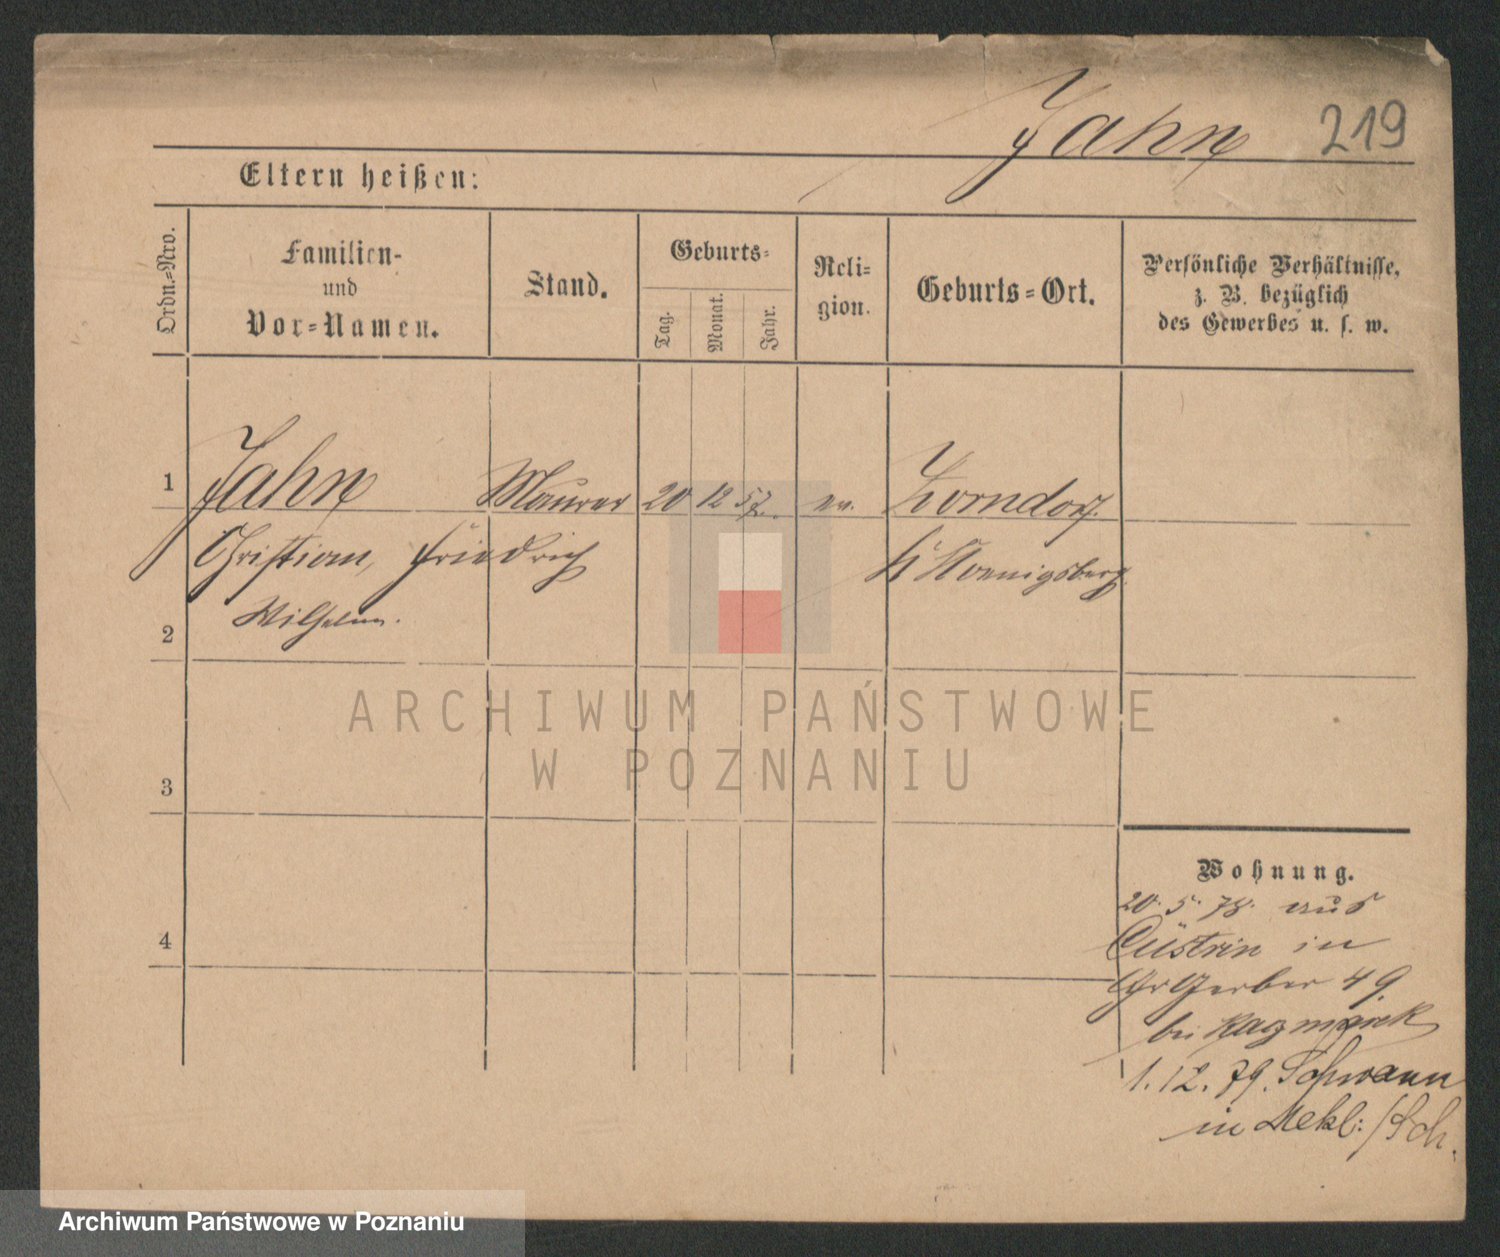 Jahn 219
Eltern heißen:
Ordn.-Nro.
Familien-
und
Vor-Namen.
Stand.
Geburts-
Tag.
Monat.
Jahr.
Reli-
gion.
Geburts-Ort.
Persönliche Verhältnisse,
z. B. bezüglich
des Gewerbes u. s. w.
1 Jahn Maurer 20 12 57. ev. Zorndorf.
Christian, Friedrich Koenigsberg.
Wilhelm.
2
3
4
ARCHIWUM PAŃSTWOWE
W POZNANIU
Wohnung.
20. 5. 78. aus
Cüstrin in
Gr Gerber 49.
bei Kaczmarek
1. 12. 79. Schwann
in Mekl:/Sch.
Archiwum Państwowe w Poznaniu